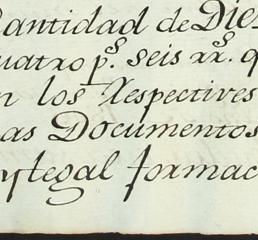 Cantidad de Die
uatro p.s seis rr.s q
n los Respectives
as Documentos
y legal formac